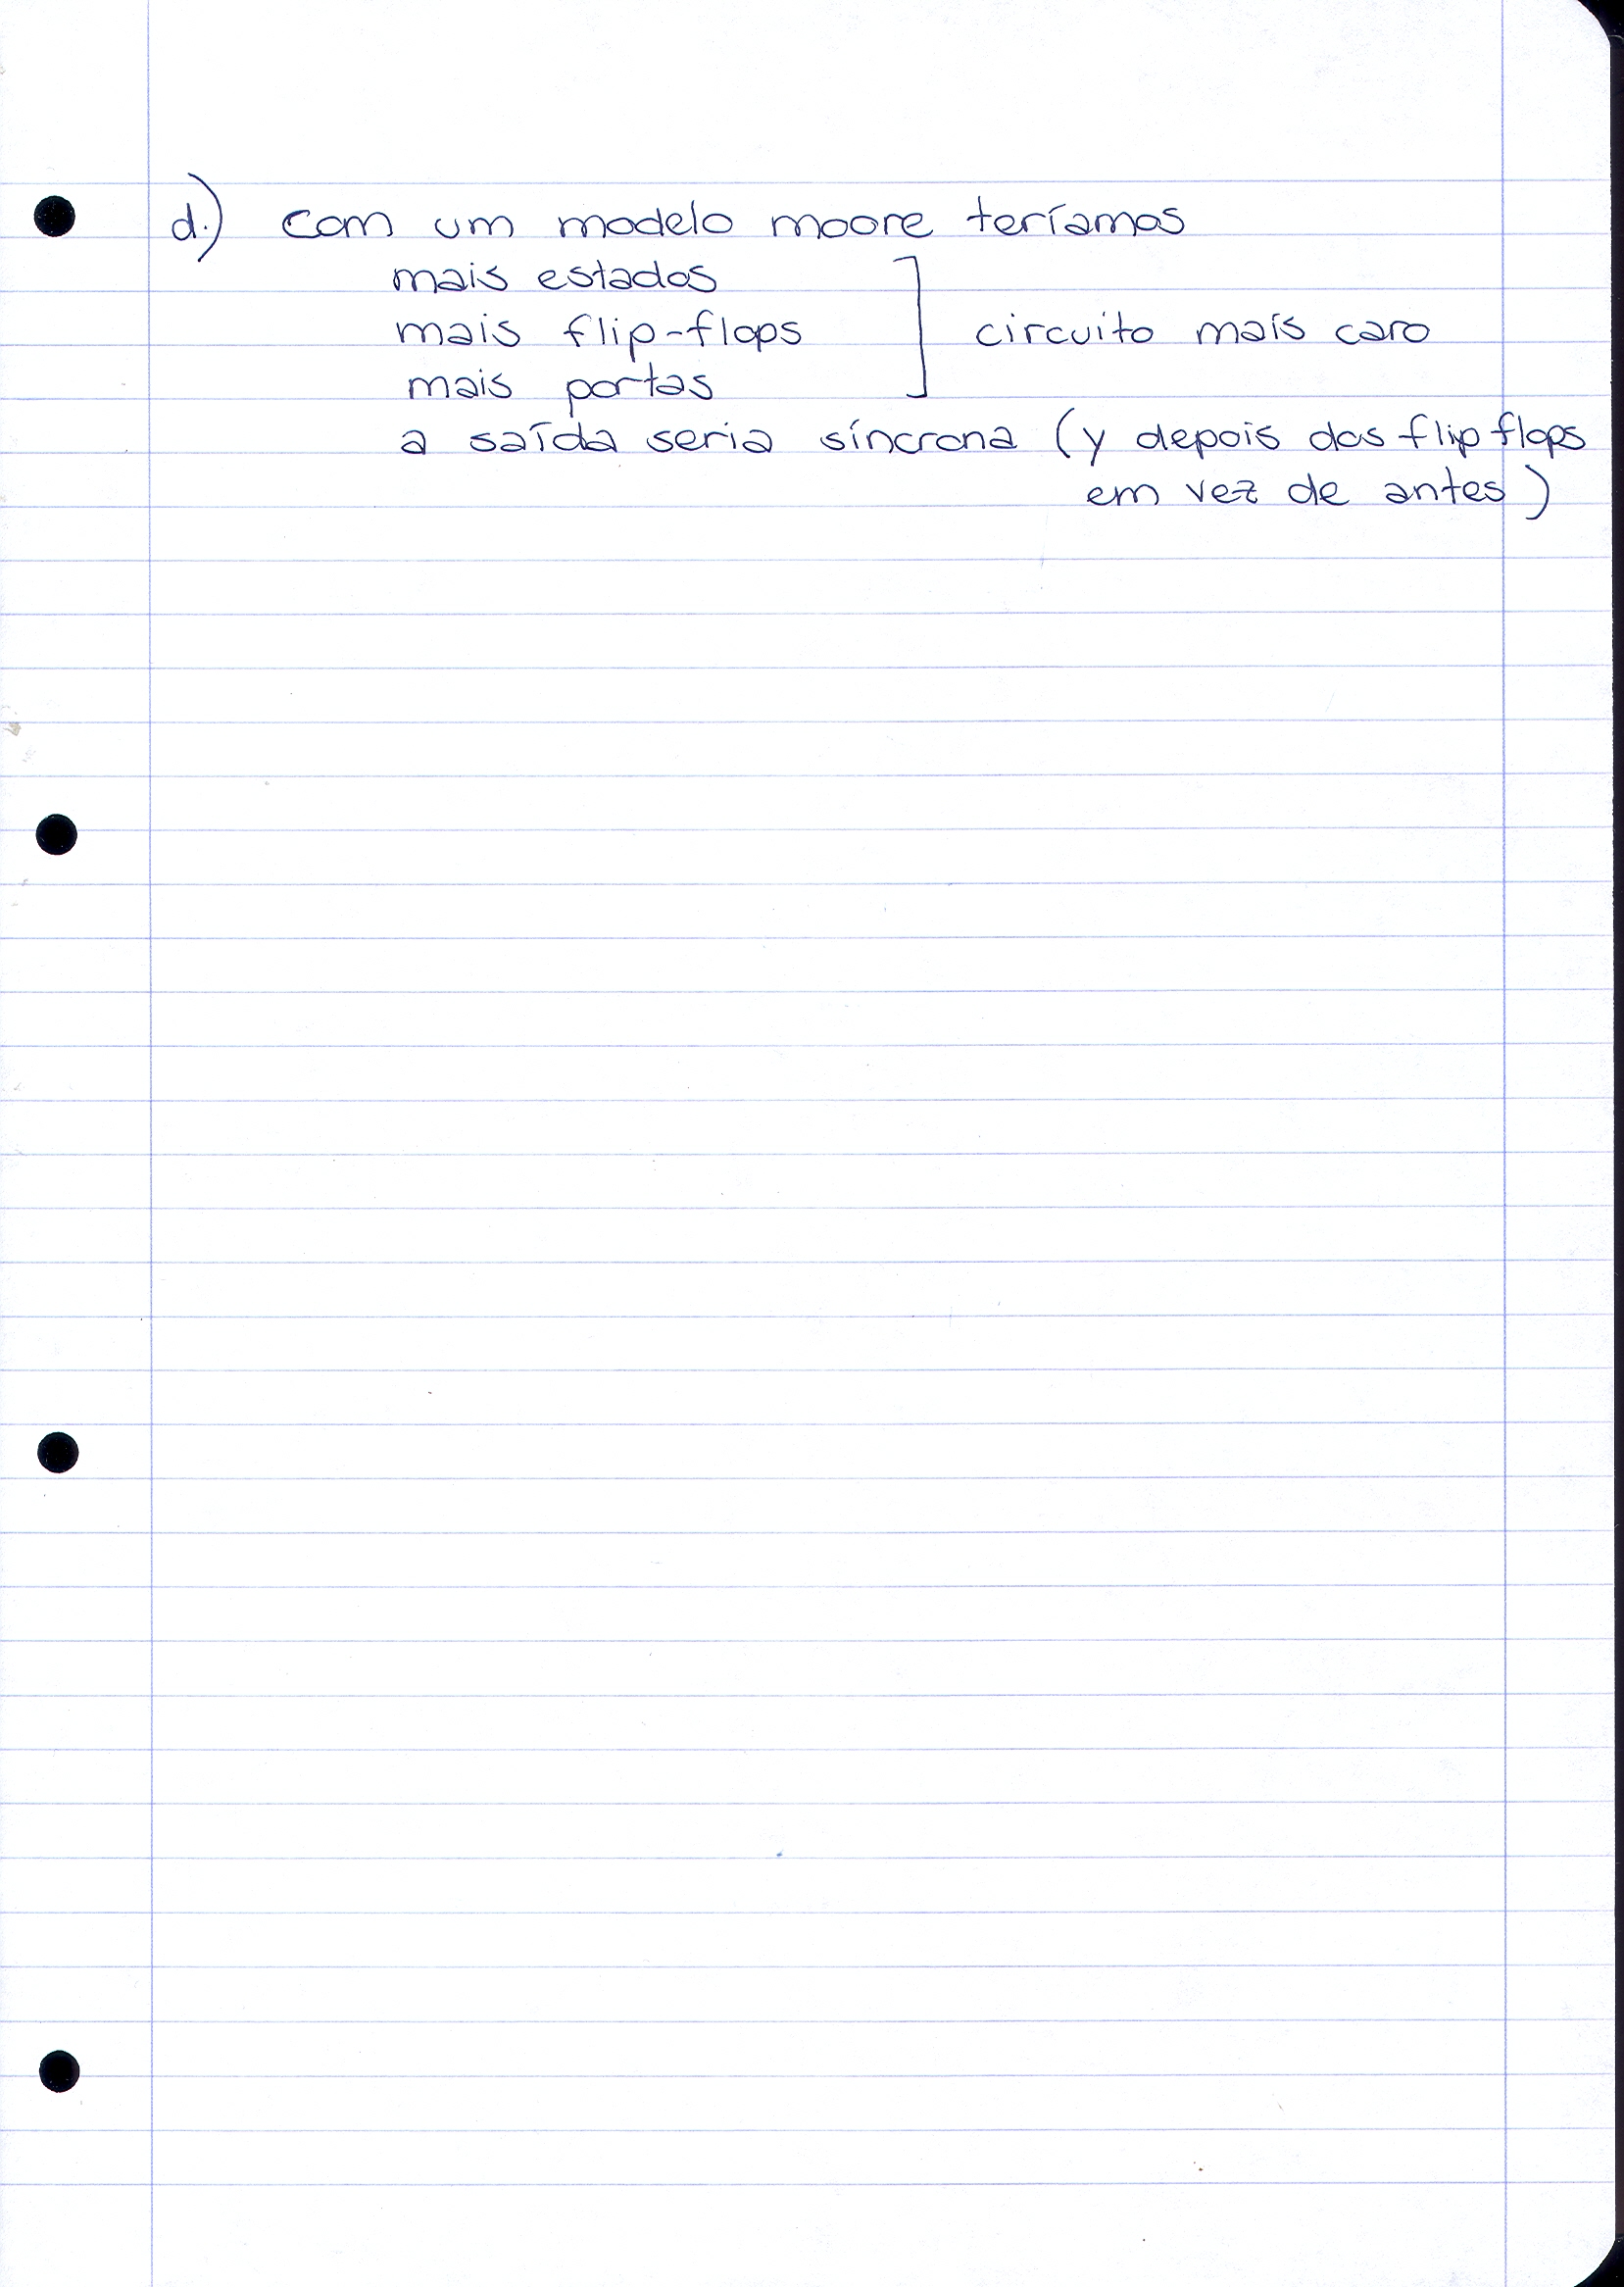 d.) com um modelo moore teríamos
mais estados
mais flip-flops ] circuito mais caro
mais portas
a saída seria síncrona (y depois dos flip flops
em vez de antes)